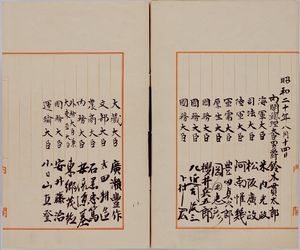 昭和二十年八月十四日
内閣總理大臣男爵 鈴木貫太郎
海軍大臣 米内光政
司法大臣 松阪廣政
陸軍大臣 阿南惟幾
軍需大臣 豊田貞次郎
厚生大臣 岡田忠彦
國務大臣 櫻井兵五郎
國務大臣 左近司政三
國務大臣 下村宏
大藏大臣 廣瀬豊作
文部大臣 太田耕造
農商大臣 石黒忠篤
内務大臣 安倍源基
外務大臣兼
大東亞大臣 東郷茂德
國務大臣 安井藤治
運輸大臣 小日山直登
内閣